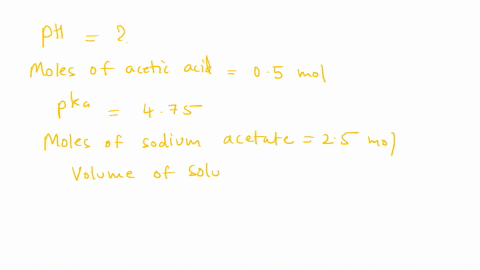 pH = ?
Moles of acetic acid = 0.5 mol
pka = 4.75
Moles of sodium acetate = 2.5 mol
Volume of solu